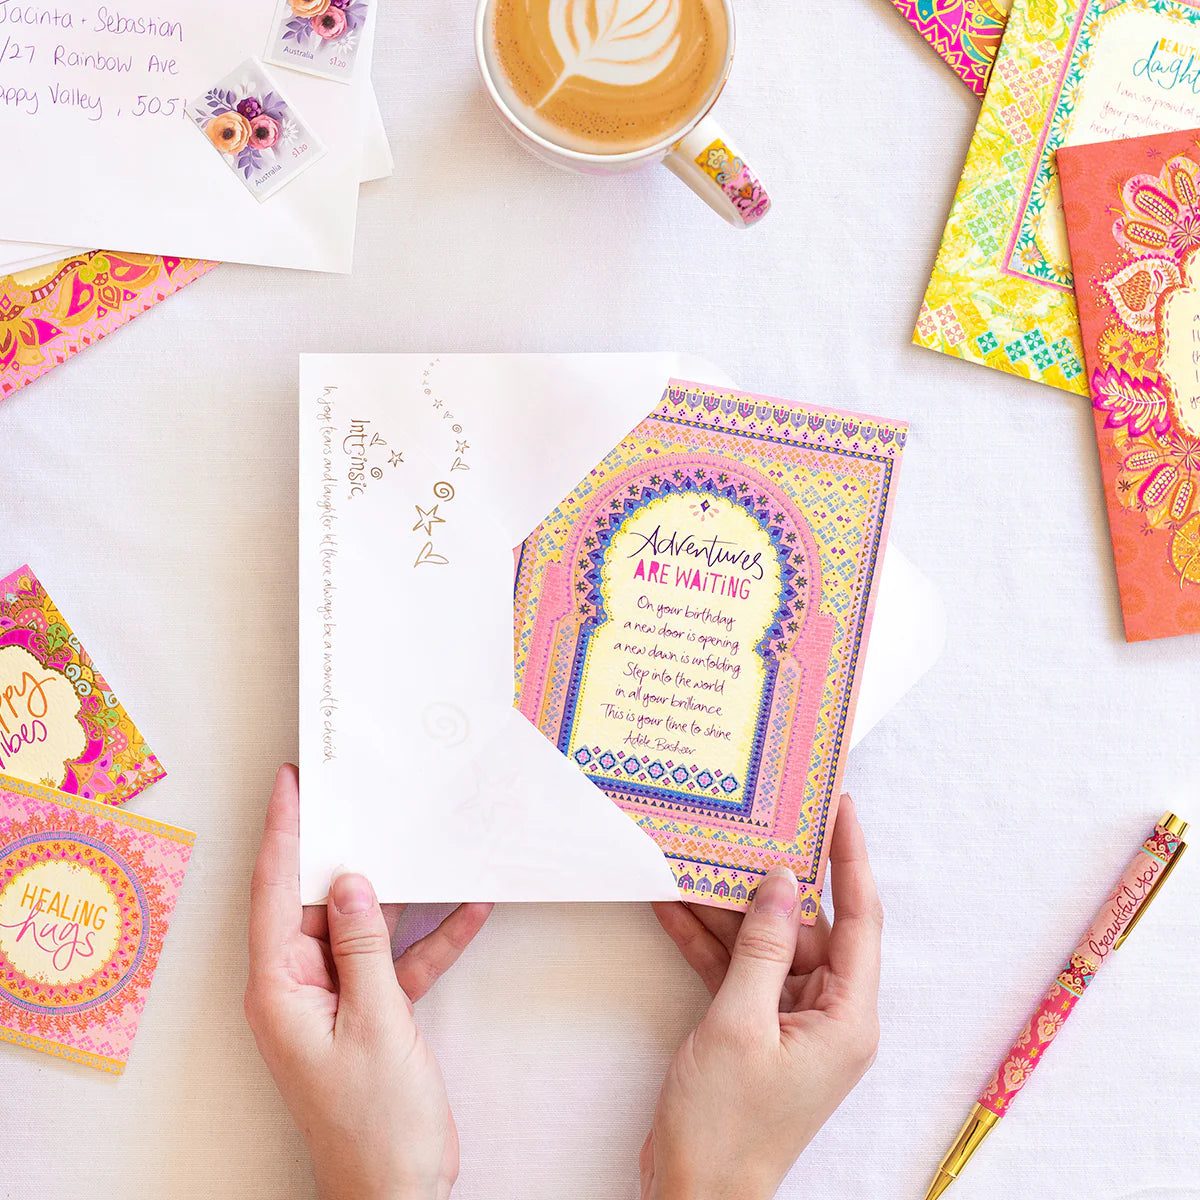 Jacinta + Sebastian
/27 Rainbow Ave
appy Valley, 5051
Australia
$1.20
Australia
$1.20
BEAUT
daught
I am so proud of
your positive en
heart an
Intrinsic
In joy, tears and laughter let there always be a moment to cherish
Adventures
ARE WAITING
On your birthday
a new door is opening
a new dawn is unfolding
Step into the world
in all your brilliance
This is your time to shine
Adèle Basheer
ppy
vibes
HEALING
hugs
beautiful you